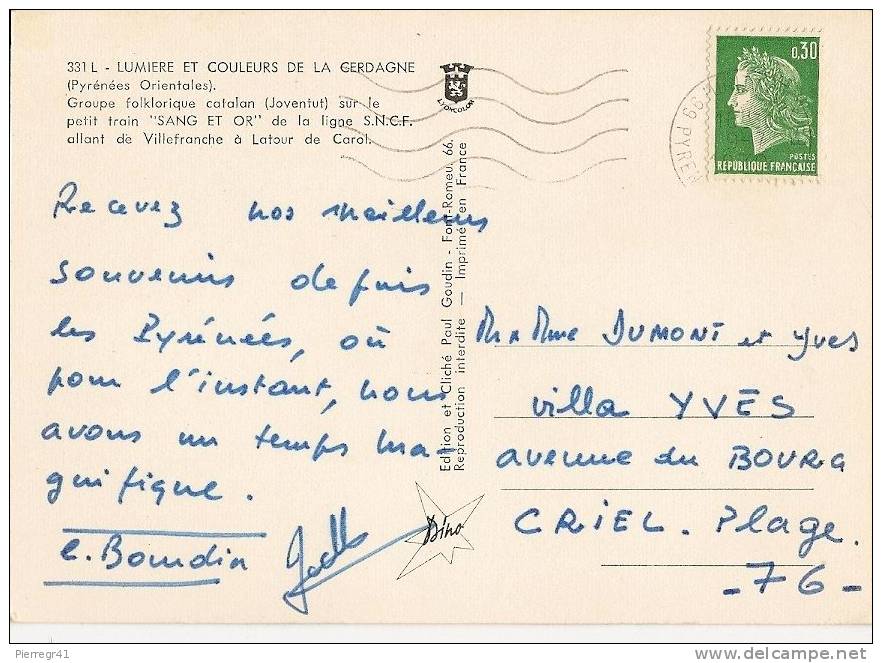 331 L - LUMIERE ET COULEURS DE LA CERDAGNE
(Pyrénées Orientales).
Groupe folklorique catalan (Joventut) sur le
petit train "SANG ET OR" de la ligne S.N.C.F.
allant de Villefranche à Latour de Carol.
LYONCOLOR
0,30
POSTES
RÉPUBLIQUE FRANÇAISE
Recevez nos meilleurs
souvenirs depuis
les Pyrénées, où
pour l'instant, nous
avons un temps ma
gnifique.
Edition et Cliché Paul Goudin - Font-Romeu, 66.
Reproduction interdite — Imprimé en France
Dino
M & Mme DUMONT et Yves
villa YVES
avenue du BOURG
CRIEL. Plage.
- 76 -
Pierregr41
www.delcampe.net